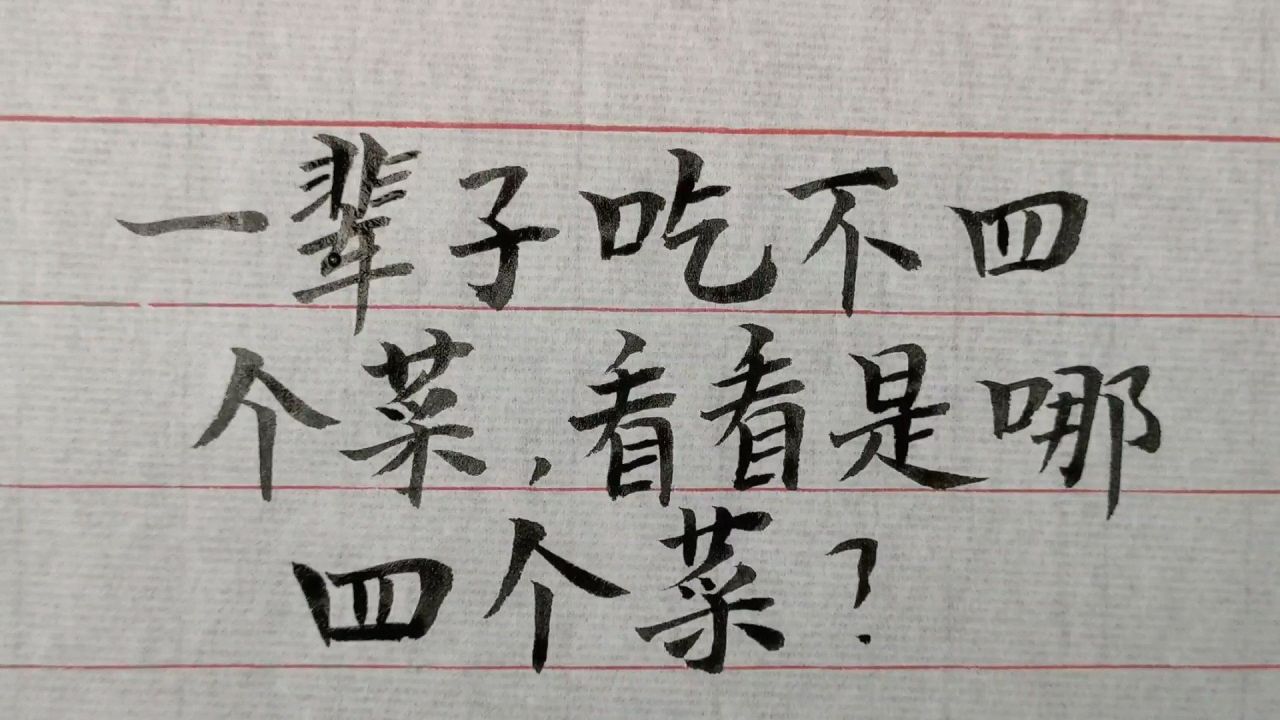 一辈子吃不四
个菜，看看是哪
四个菜？